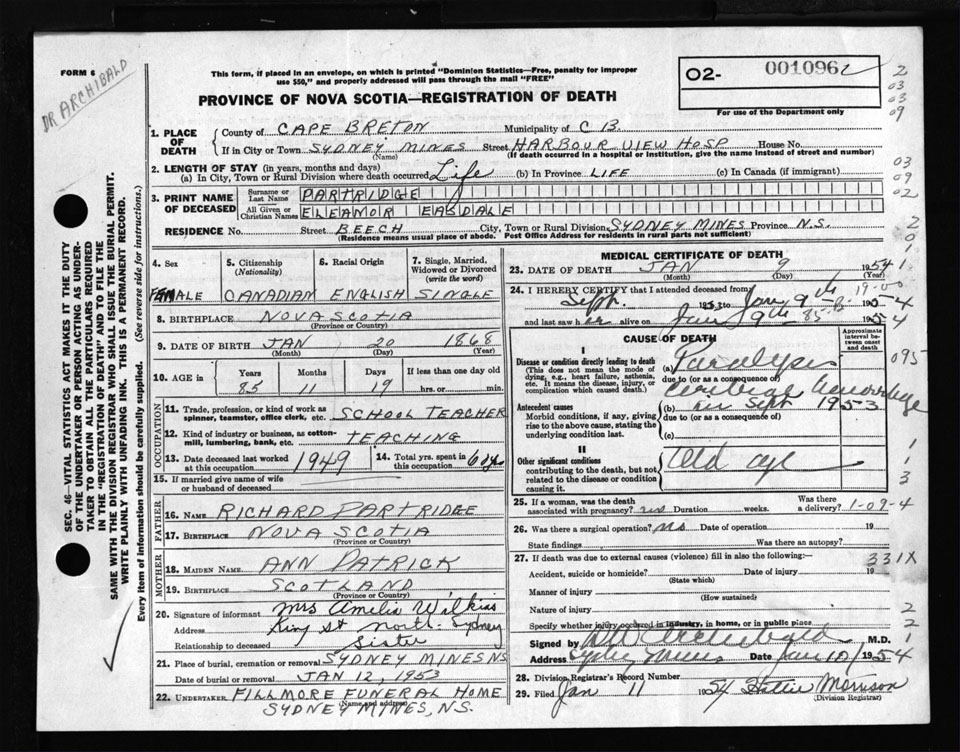 FORM 6
DR ARCHIBALD
This form, if placed in an envelope, on which is printed "Dominion Statistics—Free, penalty for improper
use $50," and properly addressed will pass through the mail "FREE"
PROVINCE OF NOVA SCOTIA—REGISTRATION OF DEATH
02- 001096
For use of the Department only
1. PLACE OF DEATH { County of CAPE BRETON Municipality of C B.
If in City or Town SYDNEY MINES Street HARBOUR VIEW HOSP House No.
(Name) (If death occurred in a hospital or institution, give the name instead of street and number)
2. LENGTH OF STAY (in years, months and days)
(a) In City, Town or Rural Division where death occurred Life (b) In Province LIFE (c) In Canada (if immigrant)
3. PRINT NAME OF DECEASED { Surname or Last Name PARTRIDGE
All Given or Christian Names ELEAMOR EASDALE
RESIDENCE No. Street BEECH City, Town or Rural Division SYDNEY MINES Province N.S.
(Residence means usual place of abode. Post Office Address for residents in rural parts not sufficient)
4. Sex FEMALE
5. Citizenship (Nationality) CANADIAN
6. Racial Origin ENGLISH
7. Single, Married, Widowed or Divorced (write the word) SINGLE
8. BIRTHPLACE NOVA SCOTIA
(Province or Country)
9. DATE OF BIRTH JAN 20 1868
(Month) (Day) (Year)
10. AGE in { Years 85 Months 11 Days 19 If less than one day old hrs. or min.
OCCUPATION
11. Trade, profession, or kind of work as spinner, teamster, office clerk, etc. SCHOOL TEACHER
12. Kind of industry or business, as cotton-mill, lumbering, bank, etc. TEACHING
13. Date deceased last worked at this occupation 1949
14. Total yrs. spent in this occupation
15. If married give name of wife or husband of deceased
FATHER
16. NAME RICHARD PARTRIDGE
17. BIRTHPLACE NOVA SCOTIA
(Province or Country)
MOTHER
18. MAIDEN NAME ANN PATRICK
19. BIRTHPLACE SCOTLAND
(Province or Country)
20. Signature of informant Mrs Amelia Wilkins
Address King St North Sydney
Relationship to deceased Sister
21. Place of burial, cremation or removal SYDNEY MINES NS
Date of burial or removal JAN 12, 1953
22. UNDERTAKER FILLMORE FUNERAL HOME
(Name and address)
SYDNEY MINES, N.S.
MEDICAL CERTIFICATE OF DEATH
23. DATE OF DEATH JAN 9 1954
(Month) (Day)
24. I HEREBY CERTIFY that I attended deceased from
Sept. 1953 to Jan 9th 1954
and last saw her alive on Jan 9th 1954
CAUSE OF DEATH
Approximate interval between onset and death
I
Disease or condition directly leading to death
(This does not mean the mode of dying, e.g., heart failure, asthenia, etc. It means the disease, injury, or complication which caused death.)
(a) Paralysis
due to (or as a consequence of)
Cerebral Hemorrhage
Antecedent causes
Morbid conditions, if any, giving rise to the above cause, stating the underlying condition last.
(b) in Sept 1953
due to (or as a consequence of)
(c)
II
Other significant conditions contributing to the death, but not related to the disease or condition causing it.
Old age
25. If a woman, was the death associated with pregnancy? no Duration weeks. Was there a delivery?
1-09-4
26. Was there a surgical operation? no Date of operation 19
State findings Was there an autopsy?
27. If death was due to external causes (violence) fill in also the following:—
Accident, suicide or homicide? Date of injury 19
(State which)
331X
Manner of injury
(How sustained)
Nature of injury
Specify whether injury occurred in industry, in home, or in public place
Signed by Archibald M.D.
Address Sydney Mines Date Jan 10/ 1954
28. Division Registrar's Record Number
29. Filed Jan 11 1954 Hattie Morrison
(Division Registrar)
SEC. 46—VITAL STATISTICS ACT MAKES IT THE DUTY
OF THE UNDERTAKER OR PERSON ACTING AS UNDER-
TAKER TO OBTAIN ALL THE PARTICULARS REQUIRED
IN THE "REGISTRATION OF DEATH" AND TO FILE THE
SAME WITH THE DIVISION REGISTRAR WHO SHALL ISSUE THE BURIAL PERMIT.
WRITE PLAINLY WITH UNFADING INK. THIS IS A PERMANENT RECORD.
Every item of information should be carefully supplied. (See reverse side for instructions.)
2
03
03
09
03
09
02
2
0
095
1
1
3
2
2
1